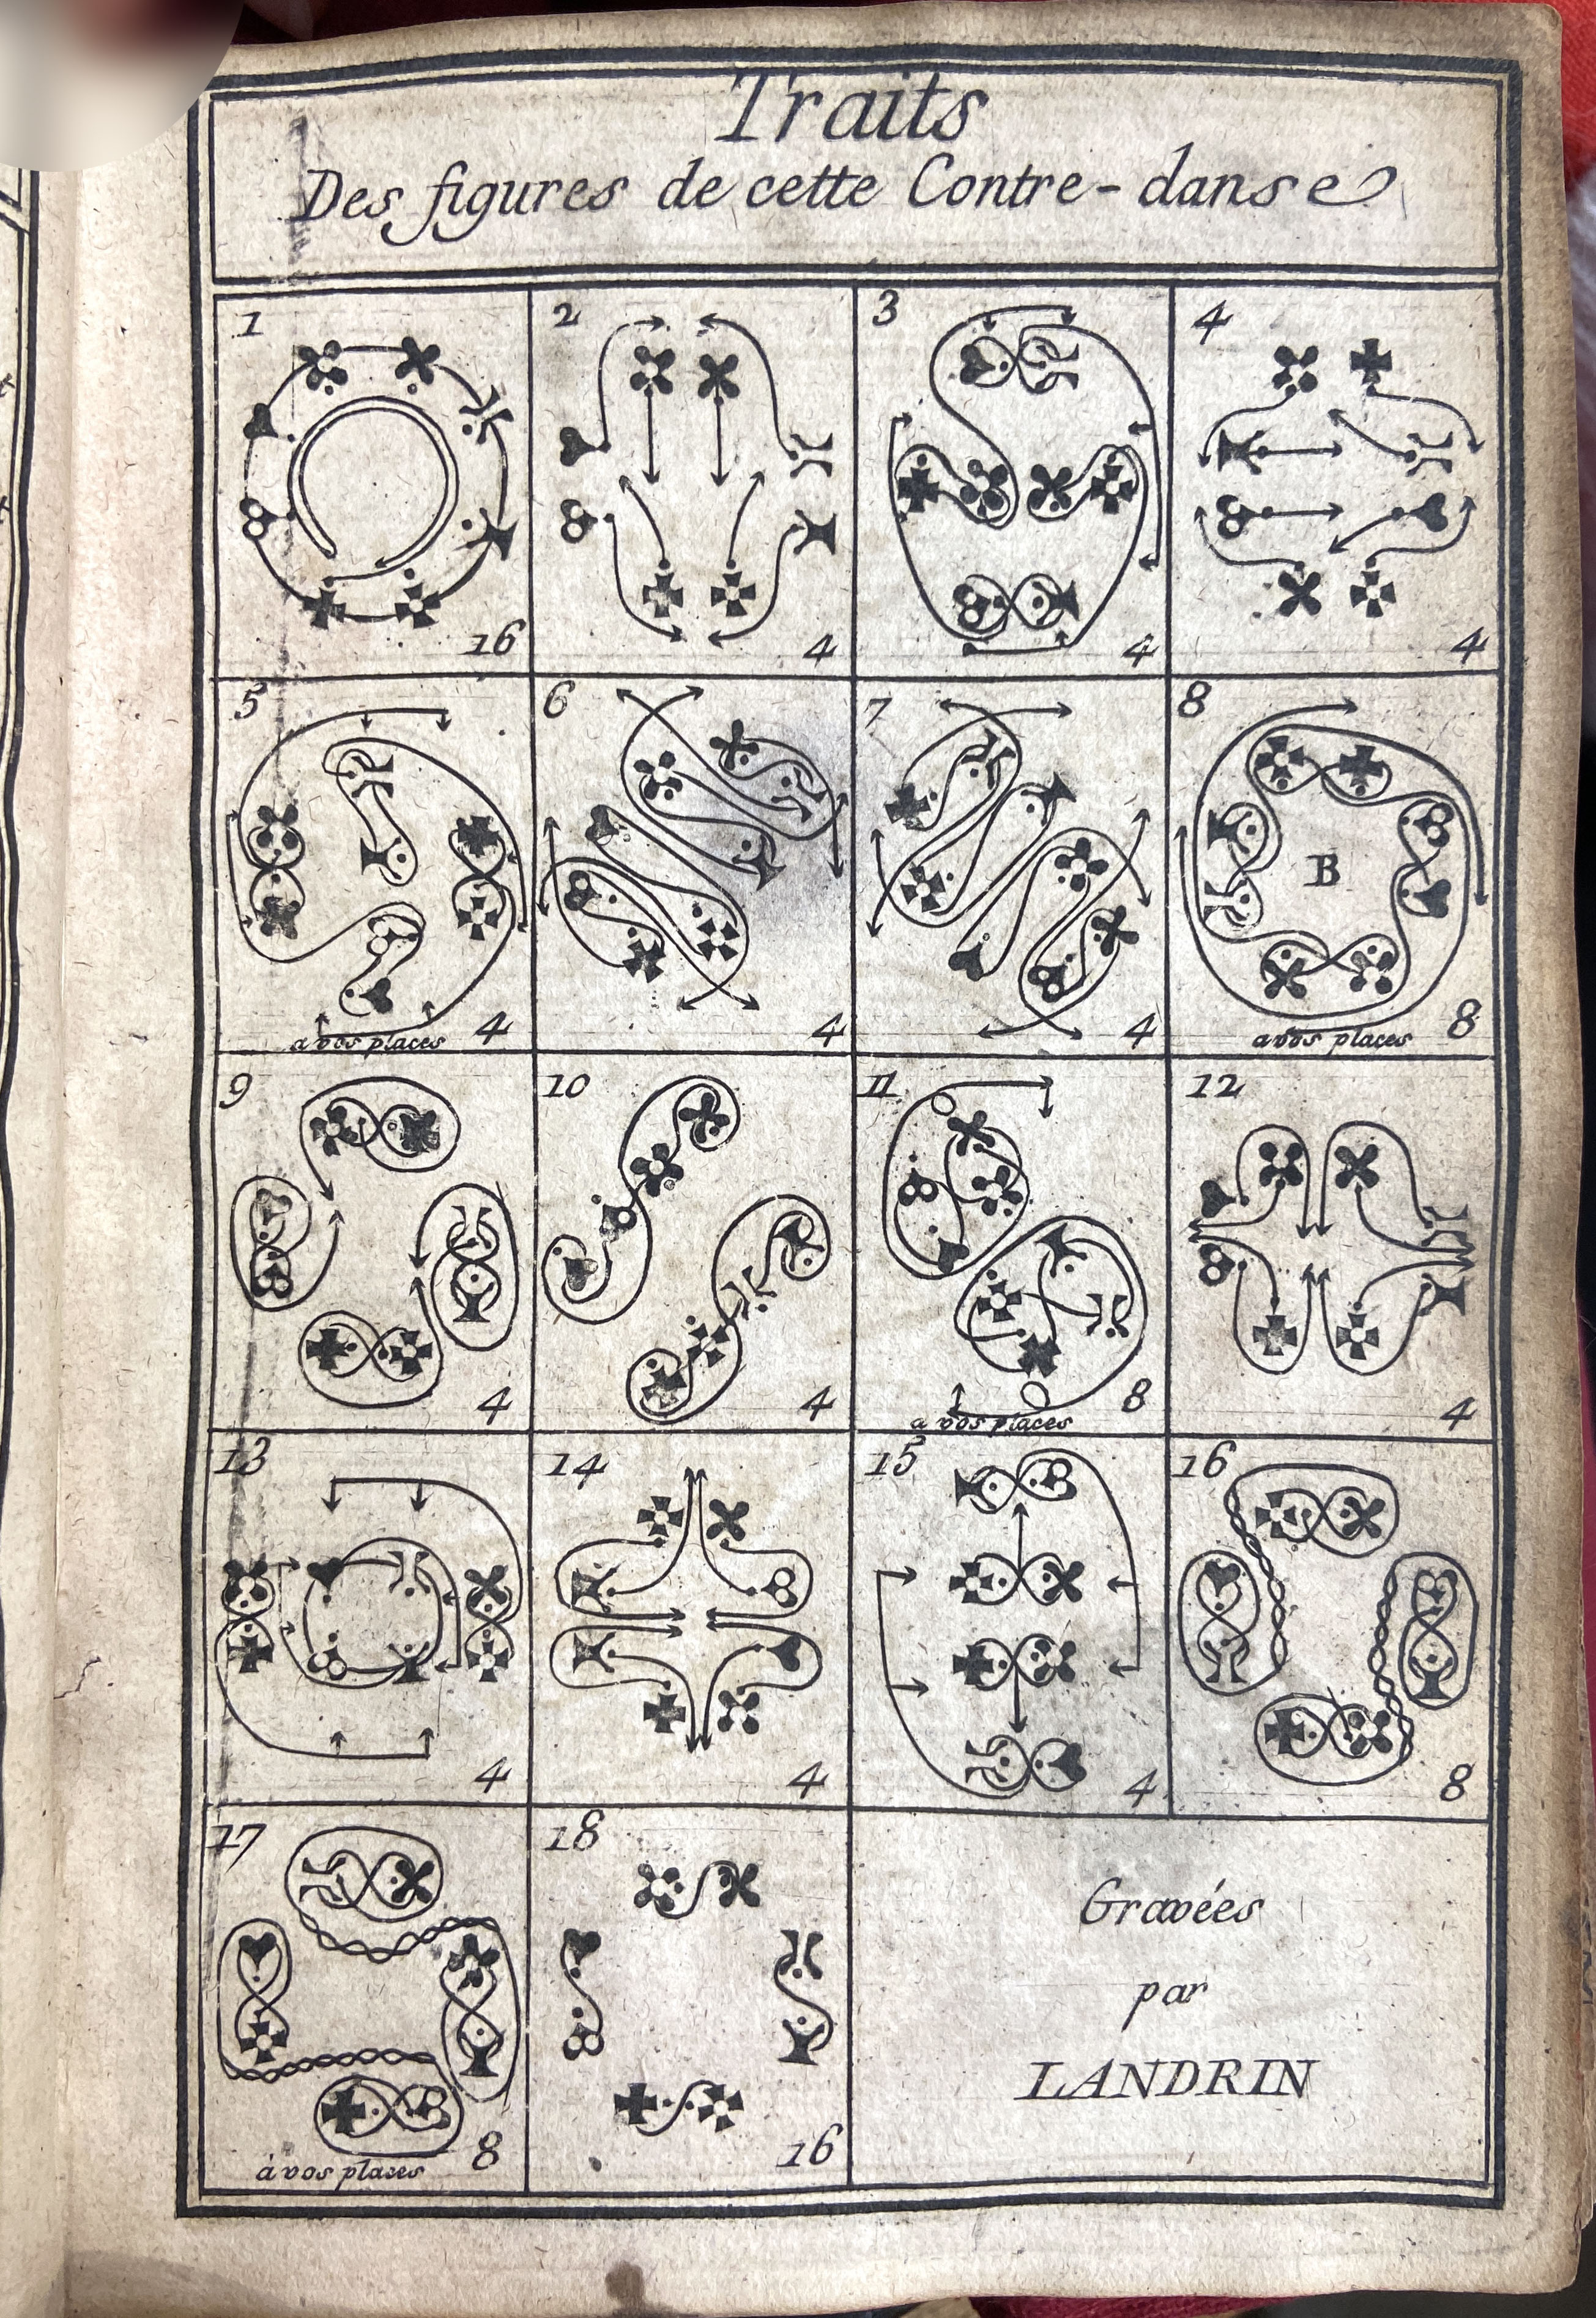 Traits
Des figures de cette Contre-danse
1
16
2
4
3
4
4
4
5
a vos places
4
6
4
7
4
8
B
a vos places
8
9
4
10
4
11
a vos places
8
12
4
13
4
14
4
15
4
16
8
17
à vos places
8
18
16
Gravées
par
LANDRIN